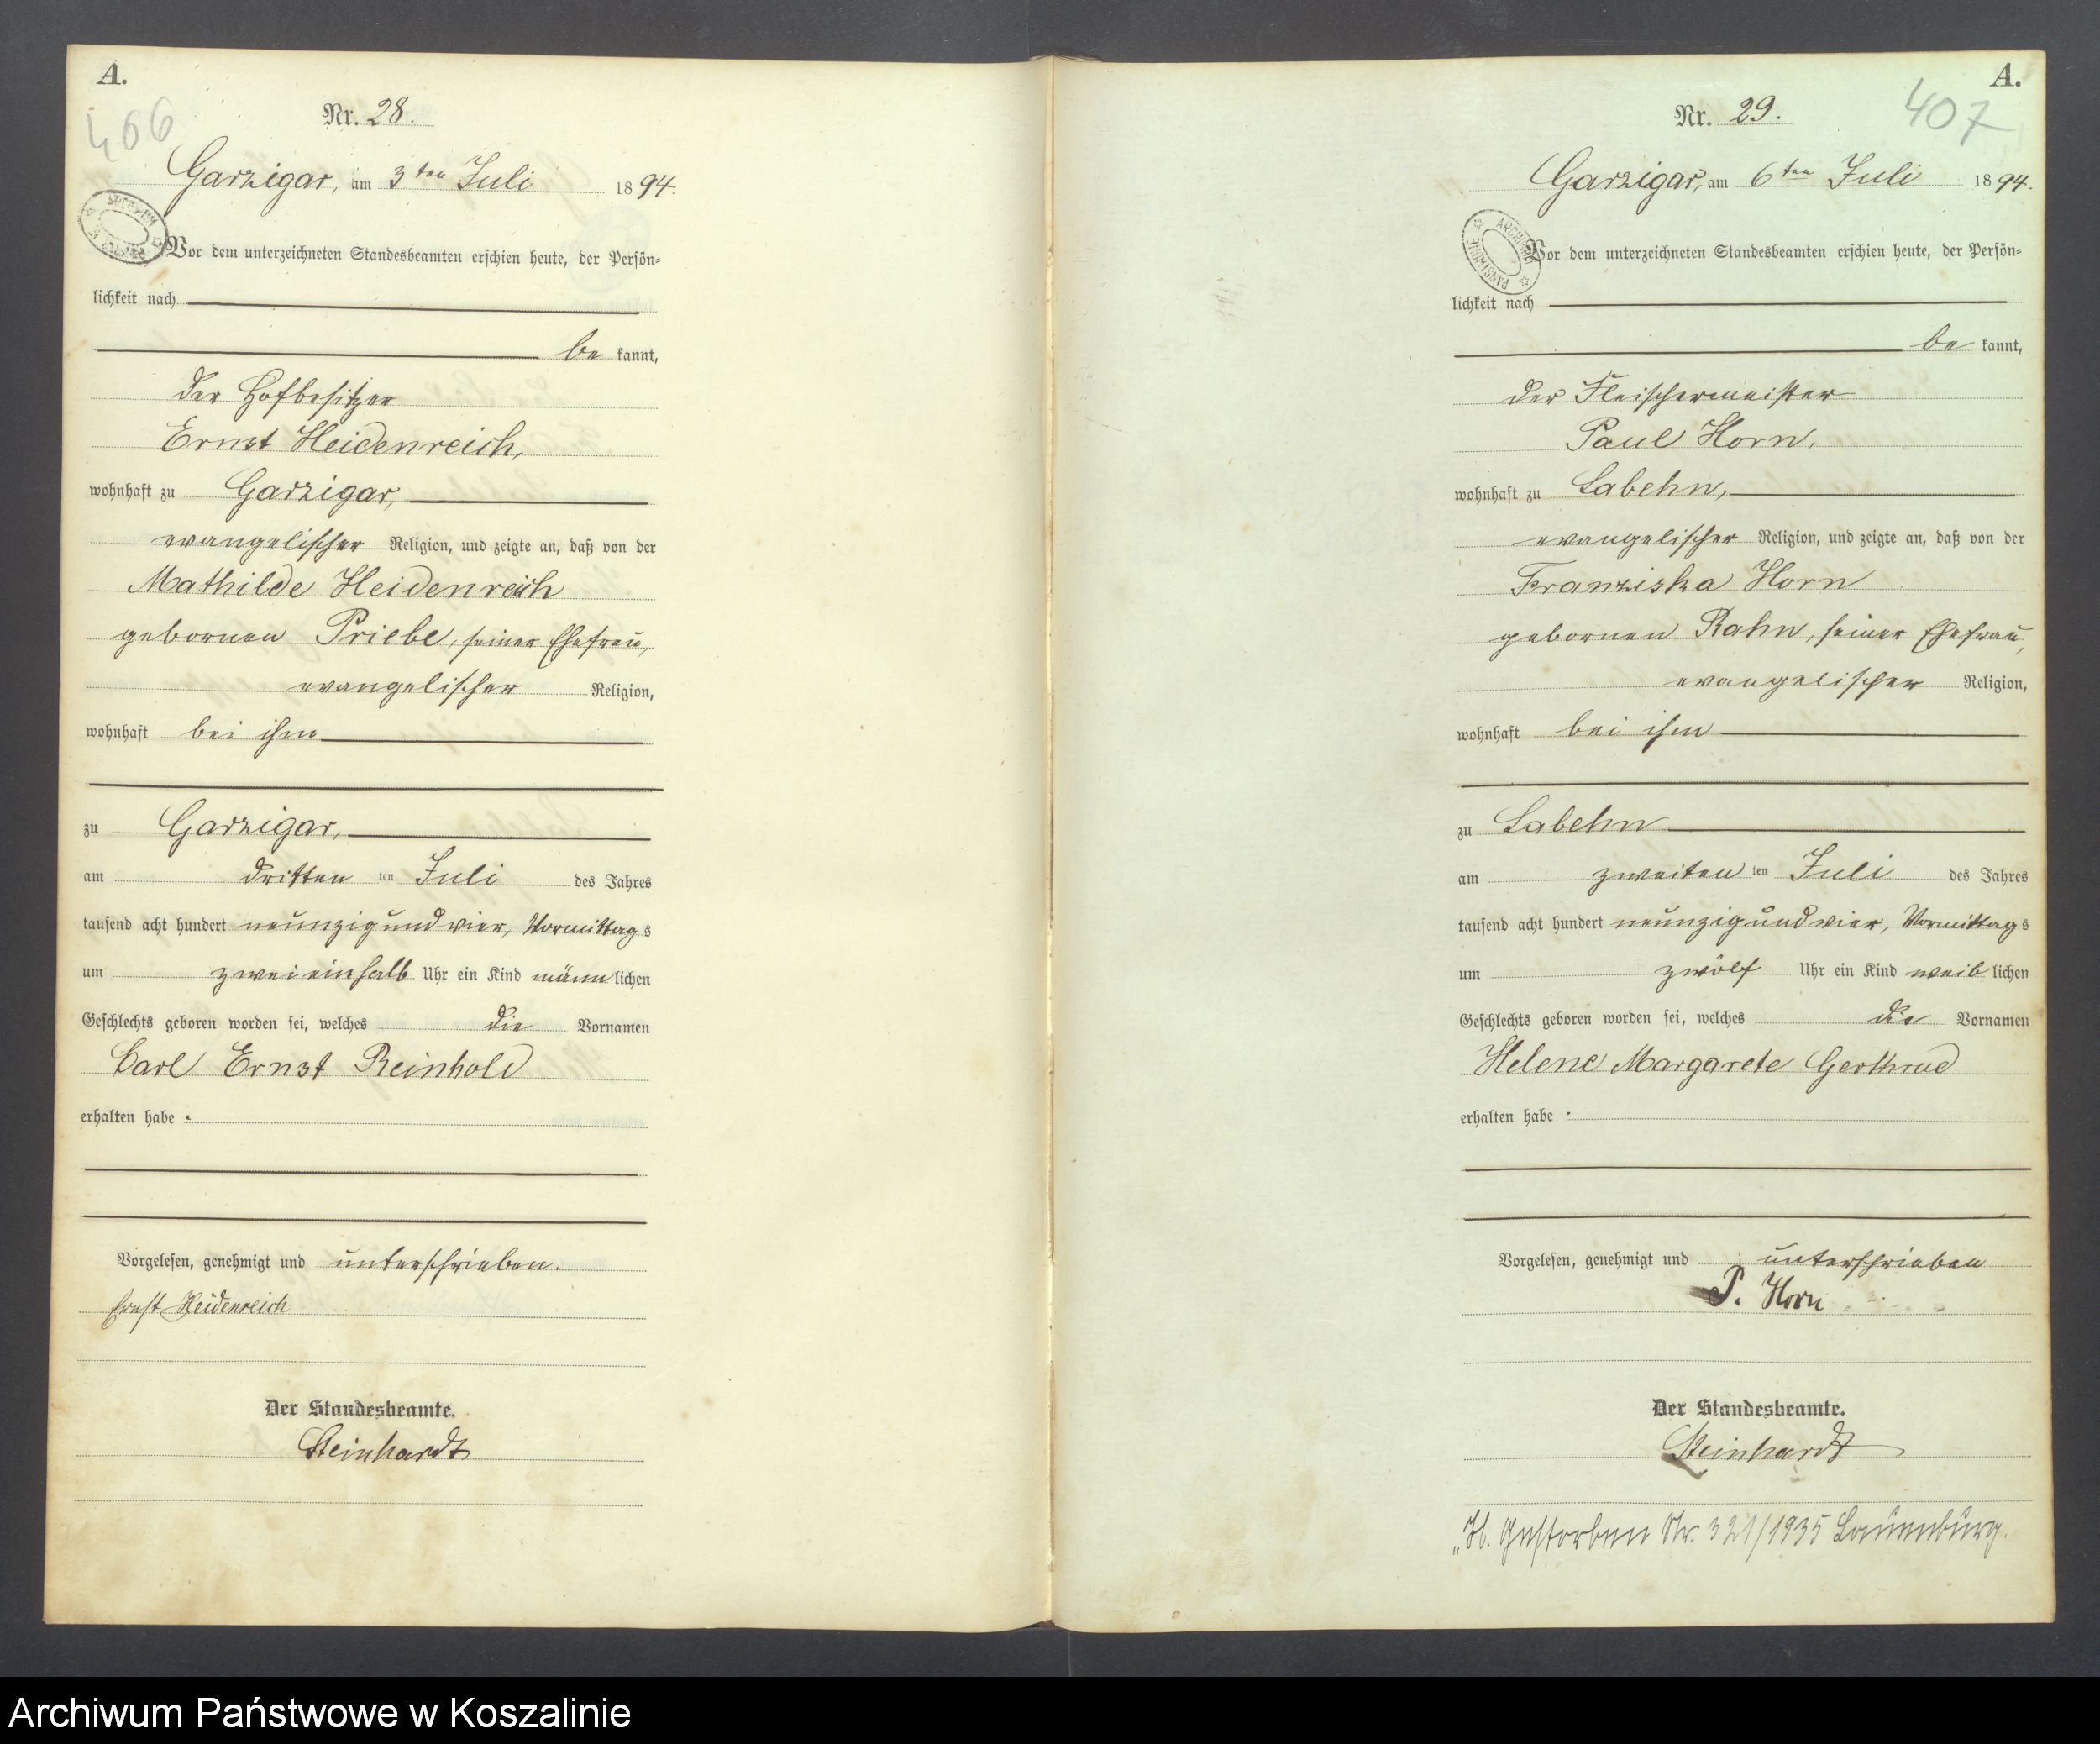 A.
Nr. 28.
Garzigar, am 3ten Juli 1894.
Vor dem unterzeichneten Standesbeamten erschien heute, der Persön-
lichkeit nach
be kannt,
der Hofbesitzer
Ernst Heidenreich,
wohnhaft zu Garzigar,
evangelischer Religion, und zeigte an, daß von der
Mathilde Heidenreich
gebornen Priebe, seiner Ehefrau,
evangelischer Religion,
wohnhaft bei ihm
zu Garzigar,
am dritten ten Juli des Jahres
tausend acht hundert neunzig und vier, Vormittags
um zweieinhalb Uhr ein Kind männlichen
Geschlechts geboren worden sei, welches die Vornamen
Carl Ernst Reinhold
erhalten habe.
Vorgelesen, genehmigt und unterschrieben.
Ernst Heidenreich
Der Standesbeamte.
Steinhardt
A.
407
Nr. 29.
Garzigar, am 6ten Juli 1894.
ARCHIWUM PAŃSTWOWE
Vor dem unterzeichneten Standesbeamten erschien heute, der Persön-
lichkeit nach
be kannt,
der Fleischermeister
Paul Horn,
wohnhaft zu Labehn,
evangelischer Religion, und zeigte an, daß von der
Franziska Horn
gebornen Rahn, seiner Ehefrau,
evangelischer Religion,
wohnhaft bei ihm
zu Labehn
am zweiten ten Juli des Jahres
tausend acht hundert neunzig und vier, Vormittags
um zwölf Uhr ein Kind weiblichen
Geschlechts geboren worden sei, welches die Vornamen
Helene Margarete Gerthrud
erhalten habe.
Vorgelesen, genehmigt und unterschrieben
P. Horn
Der Standesbeamte.
Steinhardt
Gestorben Nr. 321/1935 Lauenburg.
Archiwum Państwowe w Koszalinie